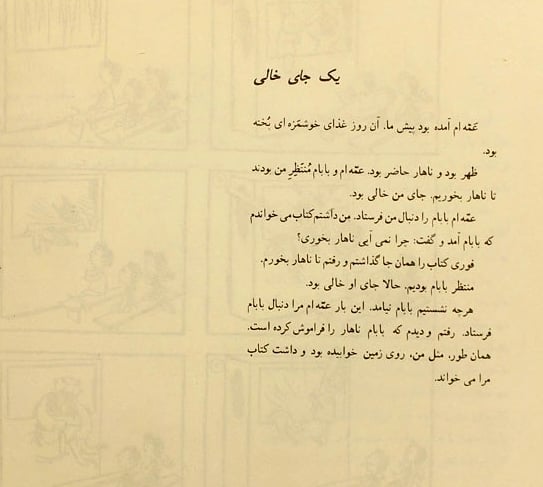 یک جای خالی
عمّه ام آمده بود پیش ما. آن روز غذای خوشمَزه ای پُخته
بود.
ظهر بود و ناهار حاضر بود. عمّه ام و بابام مُنتَظِرِ من بودند
تا ناهار بخوریم. جای من خالی بود.
عمّه ام بابام را دنبال من فرستاد. من داشتم کتاب می خواندم
که بابام آمد و گفت: چرا نمی آیی ناهار بخوری؟
فوری کتاب را همان جا گذاشتم و رفتم تا ناهار بخورم.
منتظر بابام بودیم. حالا جای او خالی بود.
هرچه نشستیم بابام نیامد. این بار عمّه ام مرا دنبال بابام
فرستاد. رفتم و دیدم که بابام ناهار را فراموش کرده است.
همان طور، مثل من، روی زمین خوابیده بود و داشت کتاب
مرا می خواند.